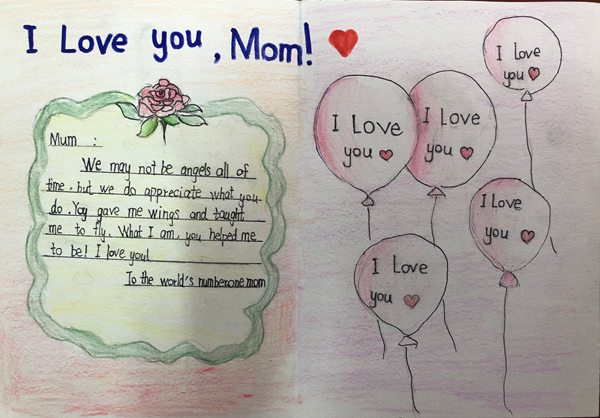 I Love you, Mom!
Mum :
We may not be angels all of
time. but we do appreciate what you
do. You gave me wings and taught
me to fly. What I am, you helped me
to be! I love you!
To the world's numberone mom
I Love
you
I Love
you
I Love
you
I Love
you
I Love
you